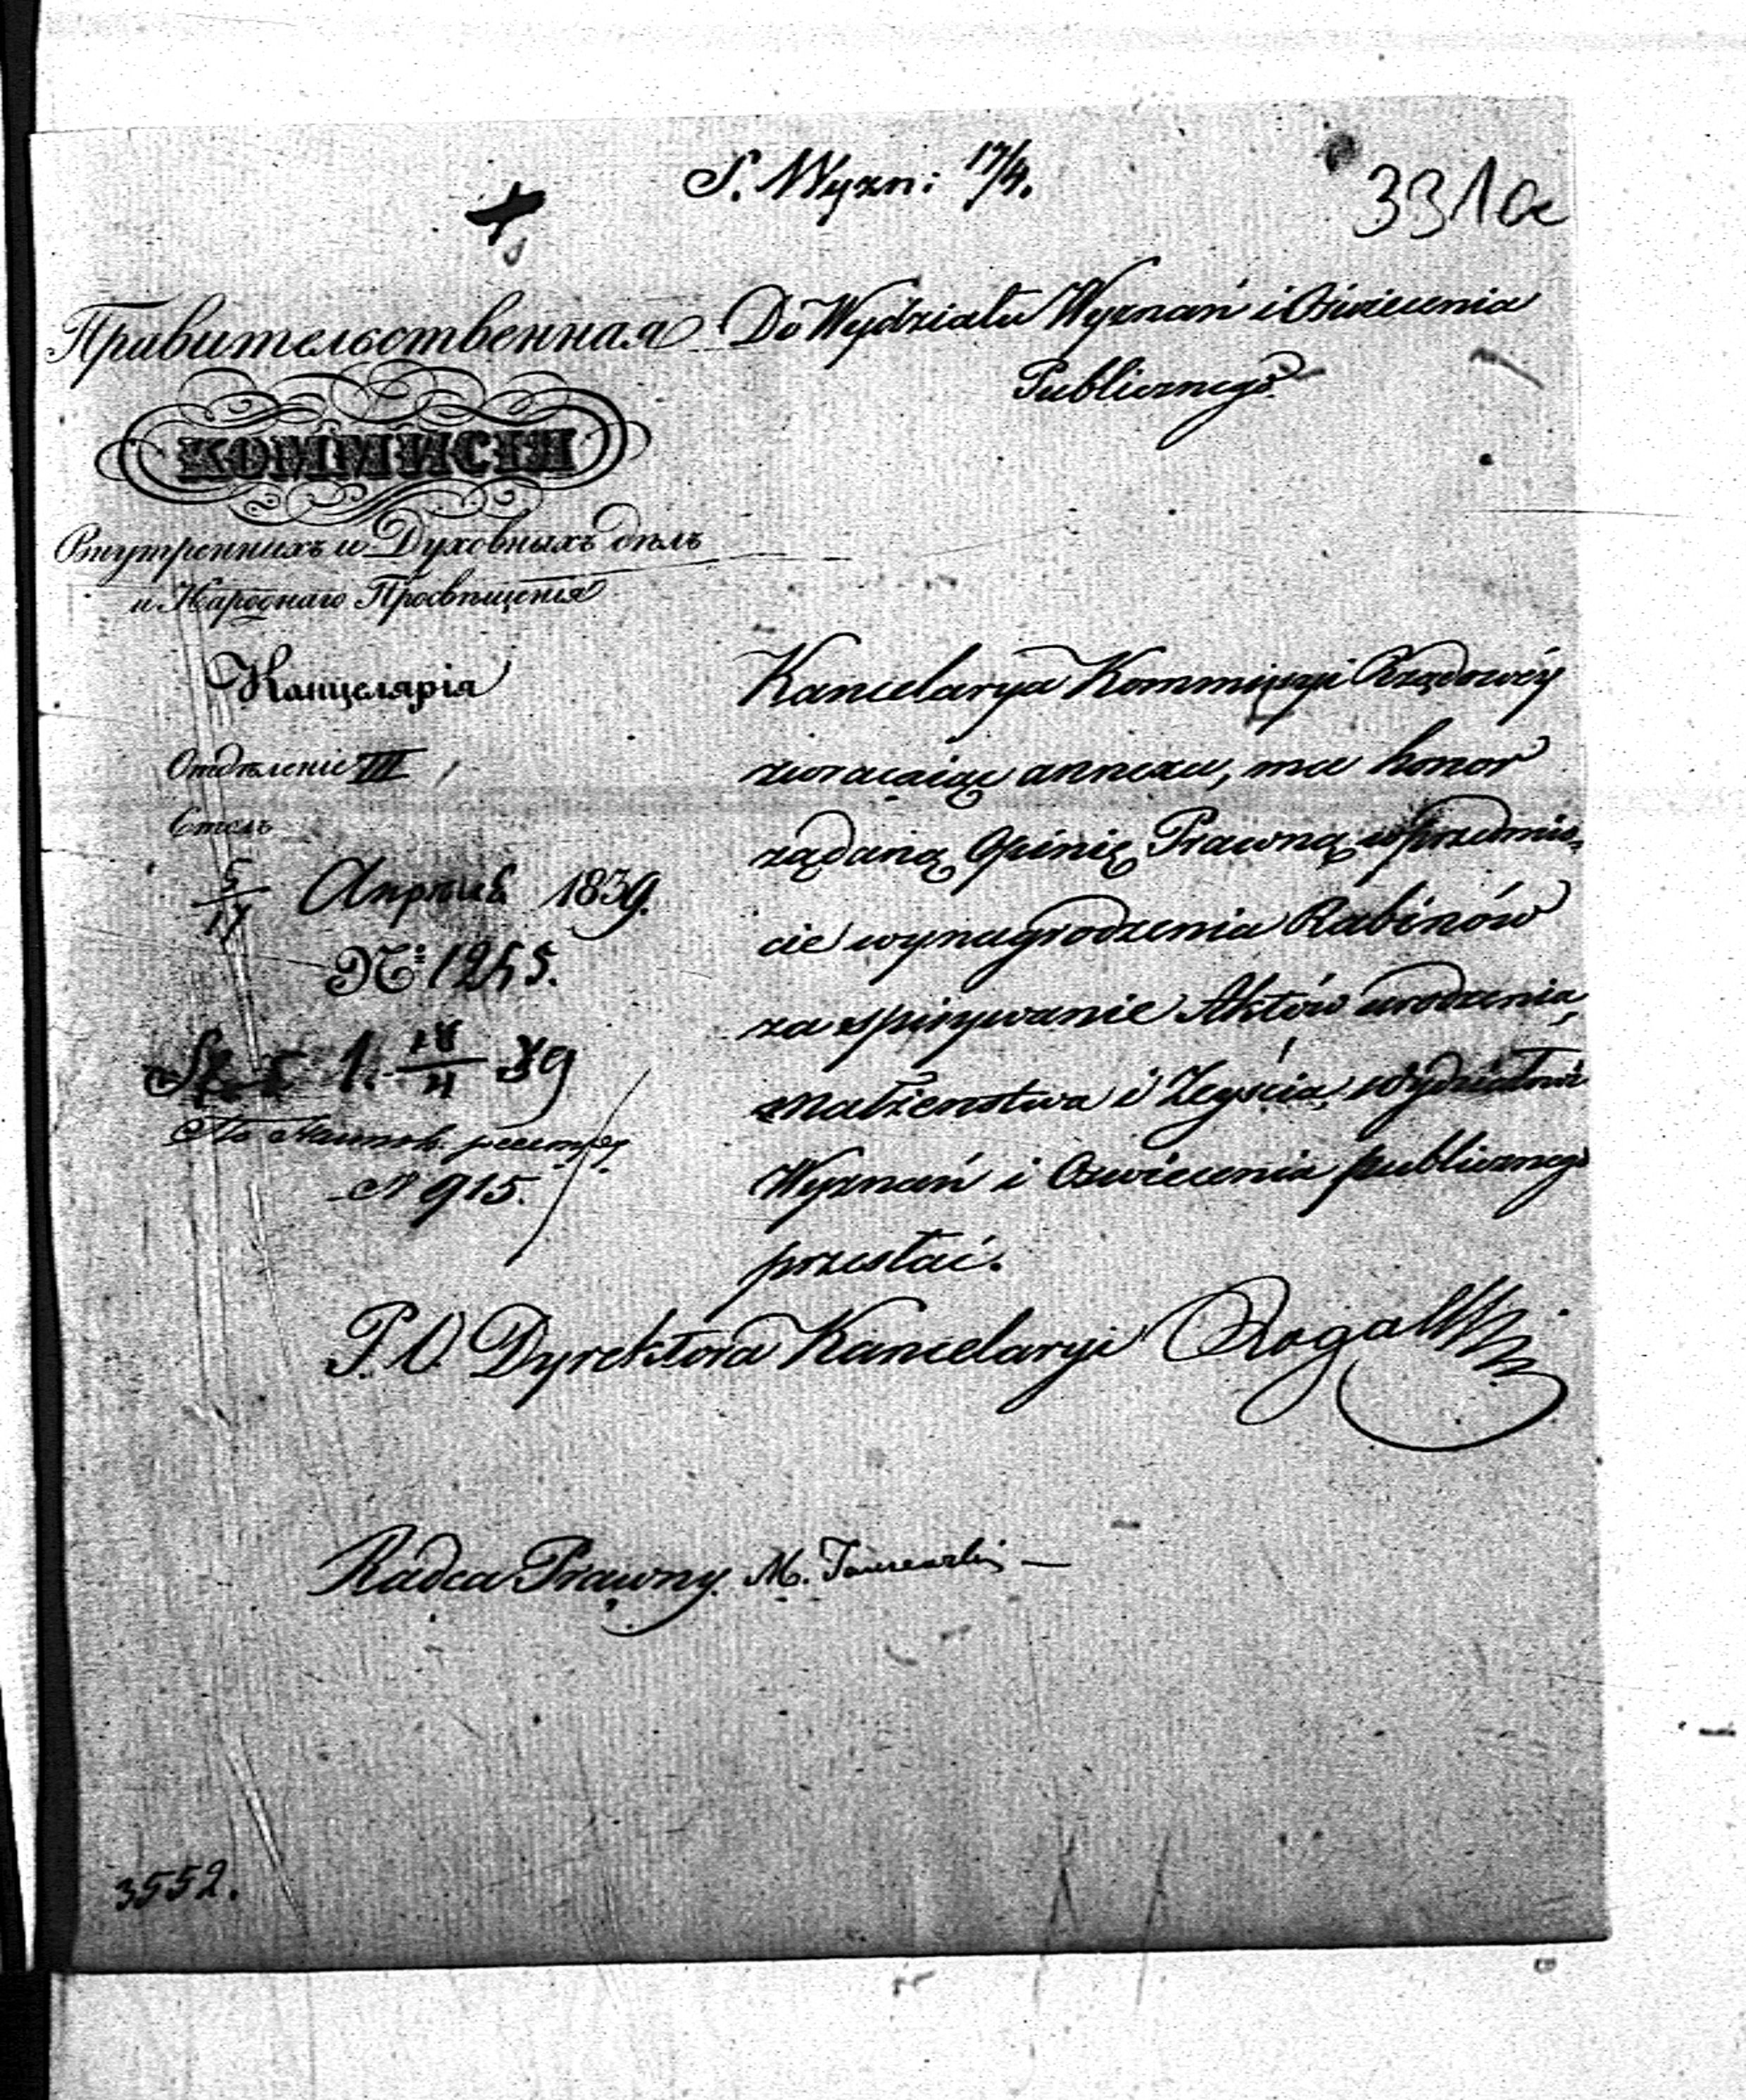 S. Wyzn: 17/4.
331a
Правительственная
КОММИСІЯ
Внутреннихъ и Духовныхъ дѣлъ
и Народнаго Просвѣщенія
Канцелярія
Отдѣленіе III
Столъ
5/17 Апрѣля 1839.
№ 1265.
1. 18/4 39
По реестру
N 915.
Do Wydziału Wyznań i Oświecenia
Publicznego.
Kancelarya Kommissyi Rządowéy
zwracaiąc annexa, ma honor
żądaną Opinię Prawną w przedmio-
cie wynagrodzenia Rabinów
za spisywanie Aktów urodzenia,
małżenstwa i Zeyścia, Wydziałowi
Wyznań i Oswiecenia publicznego
przesłać.
P. O. Dyrektora Kancelaryi Rogalski
Radca Prawny M.
3552.